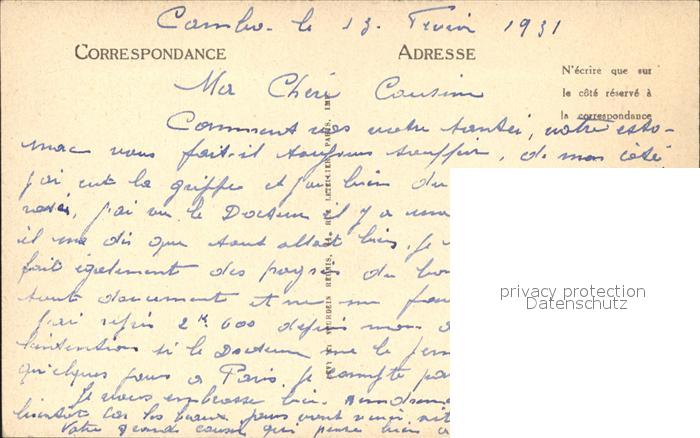 Cambo. le 13. Fevrier 1931
CORRESPONDANCE ADRESSE
N'écrire que sur
le côté réservé à
la correspondance
Ma Chère Cousine
Comment vas votre santée, votre esto-
mac vous fait-il toujours souffrir, de mon côté
j'ai eut la grippe et j'ai bien du
j'ai vu le Docteur il y a une
il me dis que tout allait bien, je
fait également des
tout doucement et ne me
J'ai repris 2 K. 600 depuis mon
l'intention si le Docteur me le
quelques jours à Paris. Je compte
Je vous embrasse bien.
bientôt car les beaux jours vont venir
Votre grande cousine qui pense bien à
privacy protection
Datenschutz